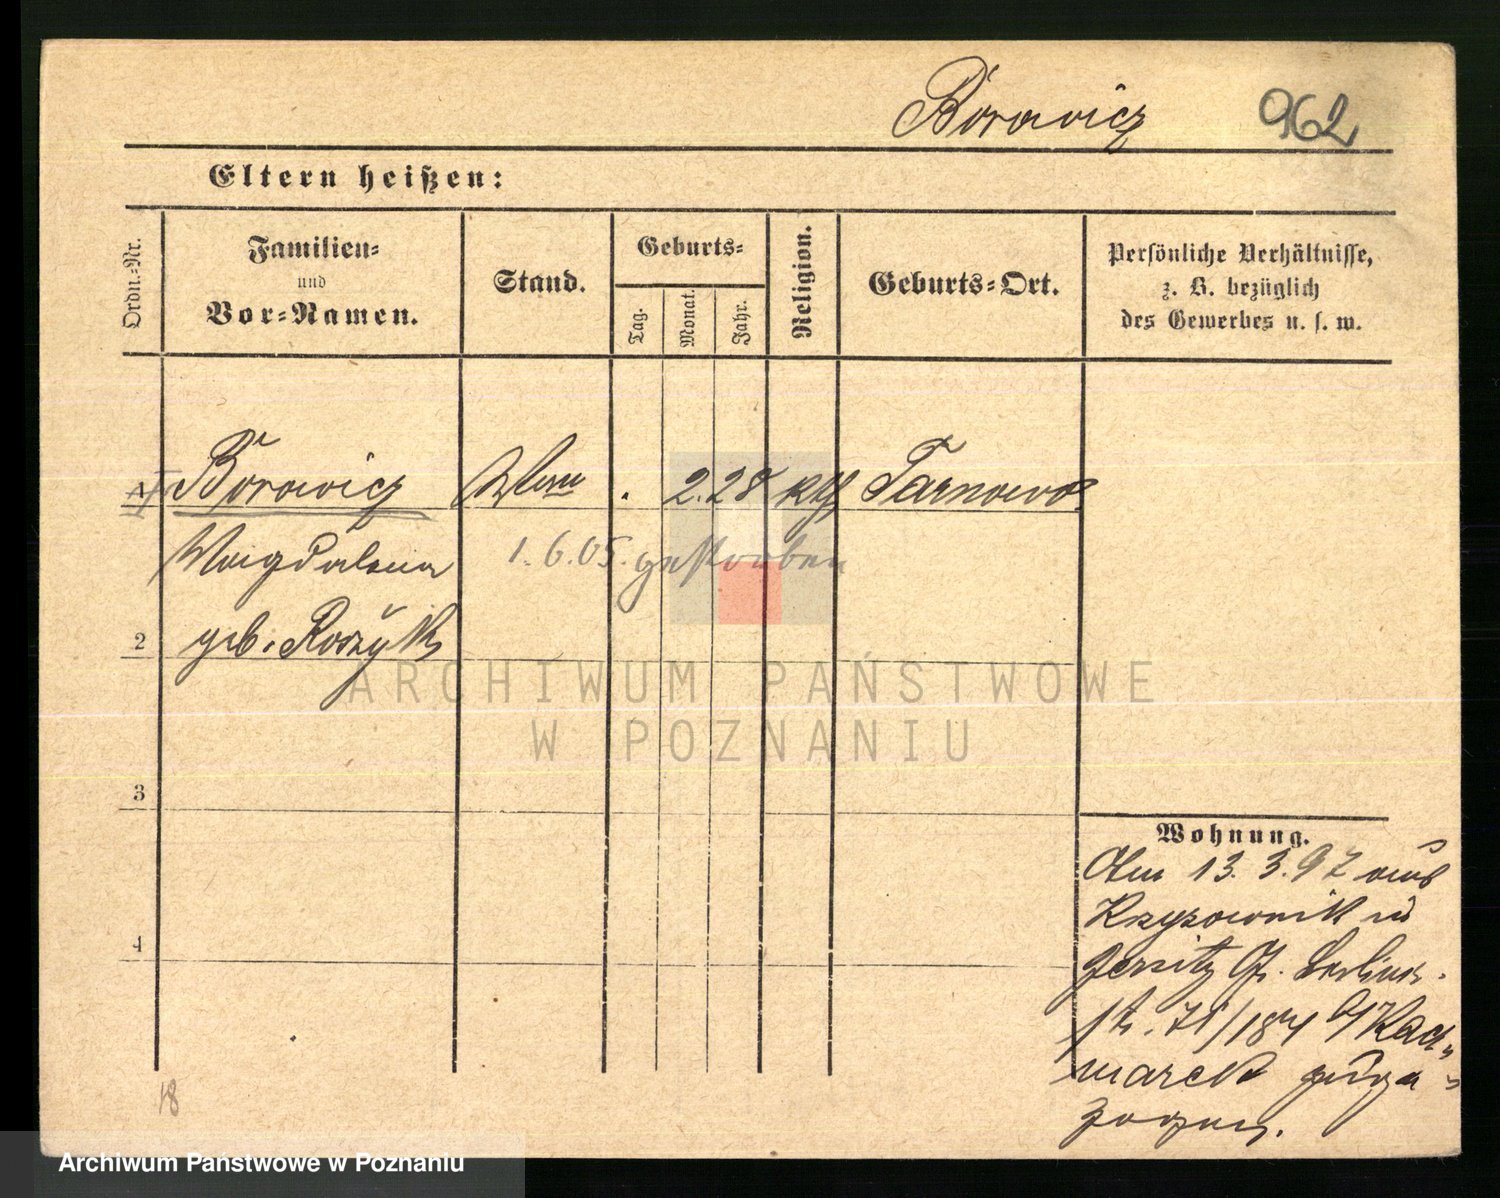 Borowicz 962
Eltern heißen:
Ordn.-Nr.
Familien-
und
Vor-Namen.
Stand.
Geburts-
Tag.
Monat.
Jahr.
Religion.
Geburts-Ort.
Persönliche Verhältnisse,
z. B. bezüglich
des Gewerbes u. s. w.
1 Borowicz . 2. 28 kth Tarnowo
Magdalena 1. 6. 05. gestorben
2 geb. Roszyk
3
4
Wohnung.
Am 13. 3. 97 aus
Krzyzownik in
Jersitz Gr. Berliner-
str. 71/184 b/Kacz-
marek zuge-
zogen.
18
ARCHIWUM PAŃSTWOWE
W POZNANIU
Archiwum Państwowe w Poznaniu